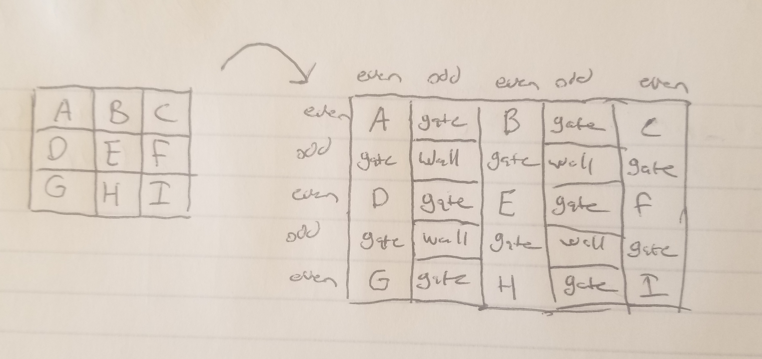 even odd even odd even
A B C
D E F
G H I
even A gate B gate C
odd gate wall gate wall gate
even D gate E gate F
odd gate wall gate wall gate
even G gate H gate I